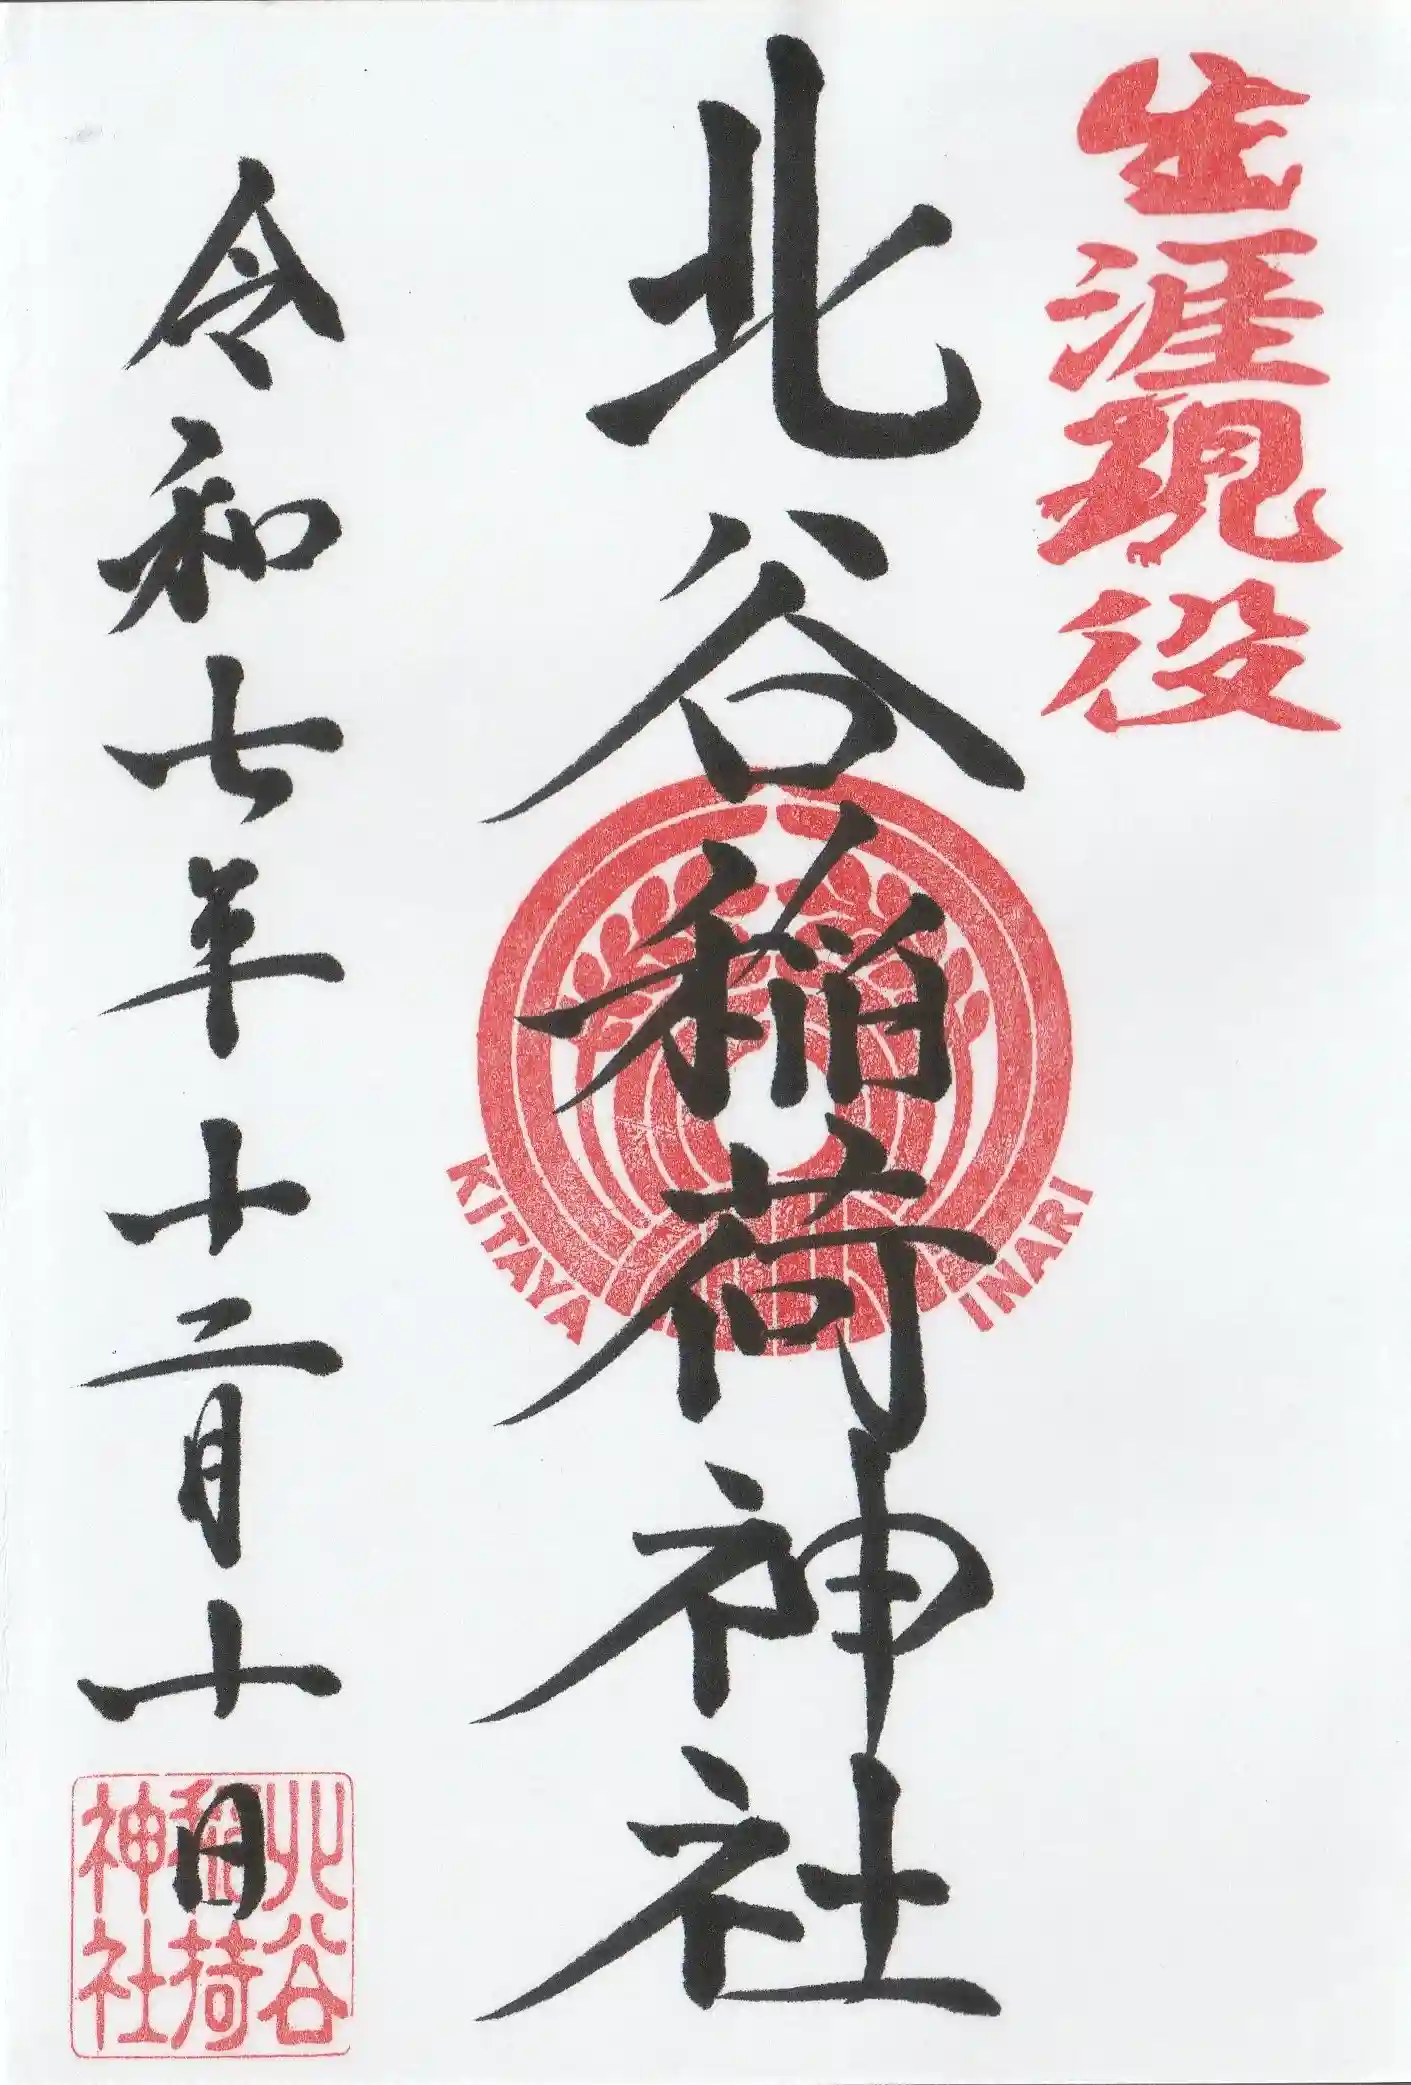 生涯現役
北谷稲荷神社
KITAYA INARI
令和七年十二月十日
北谷
稲荷
神社